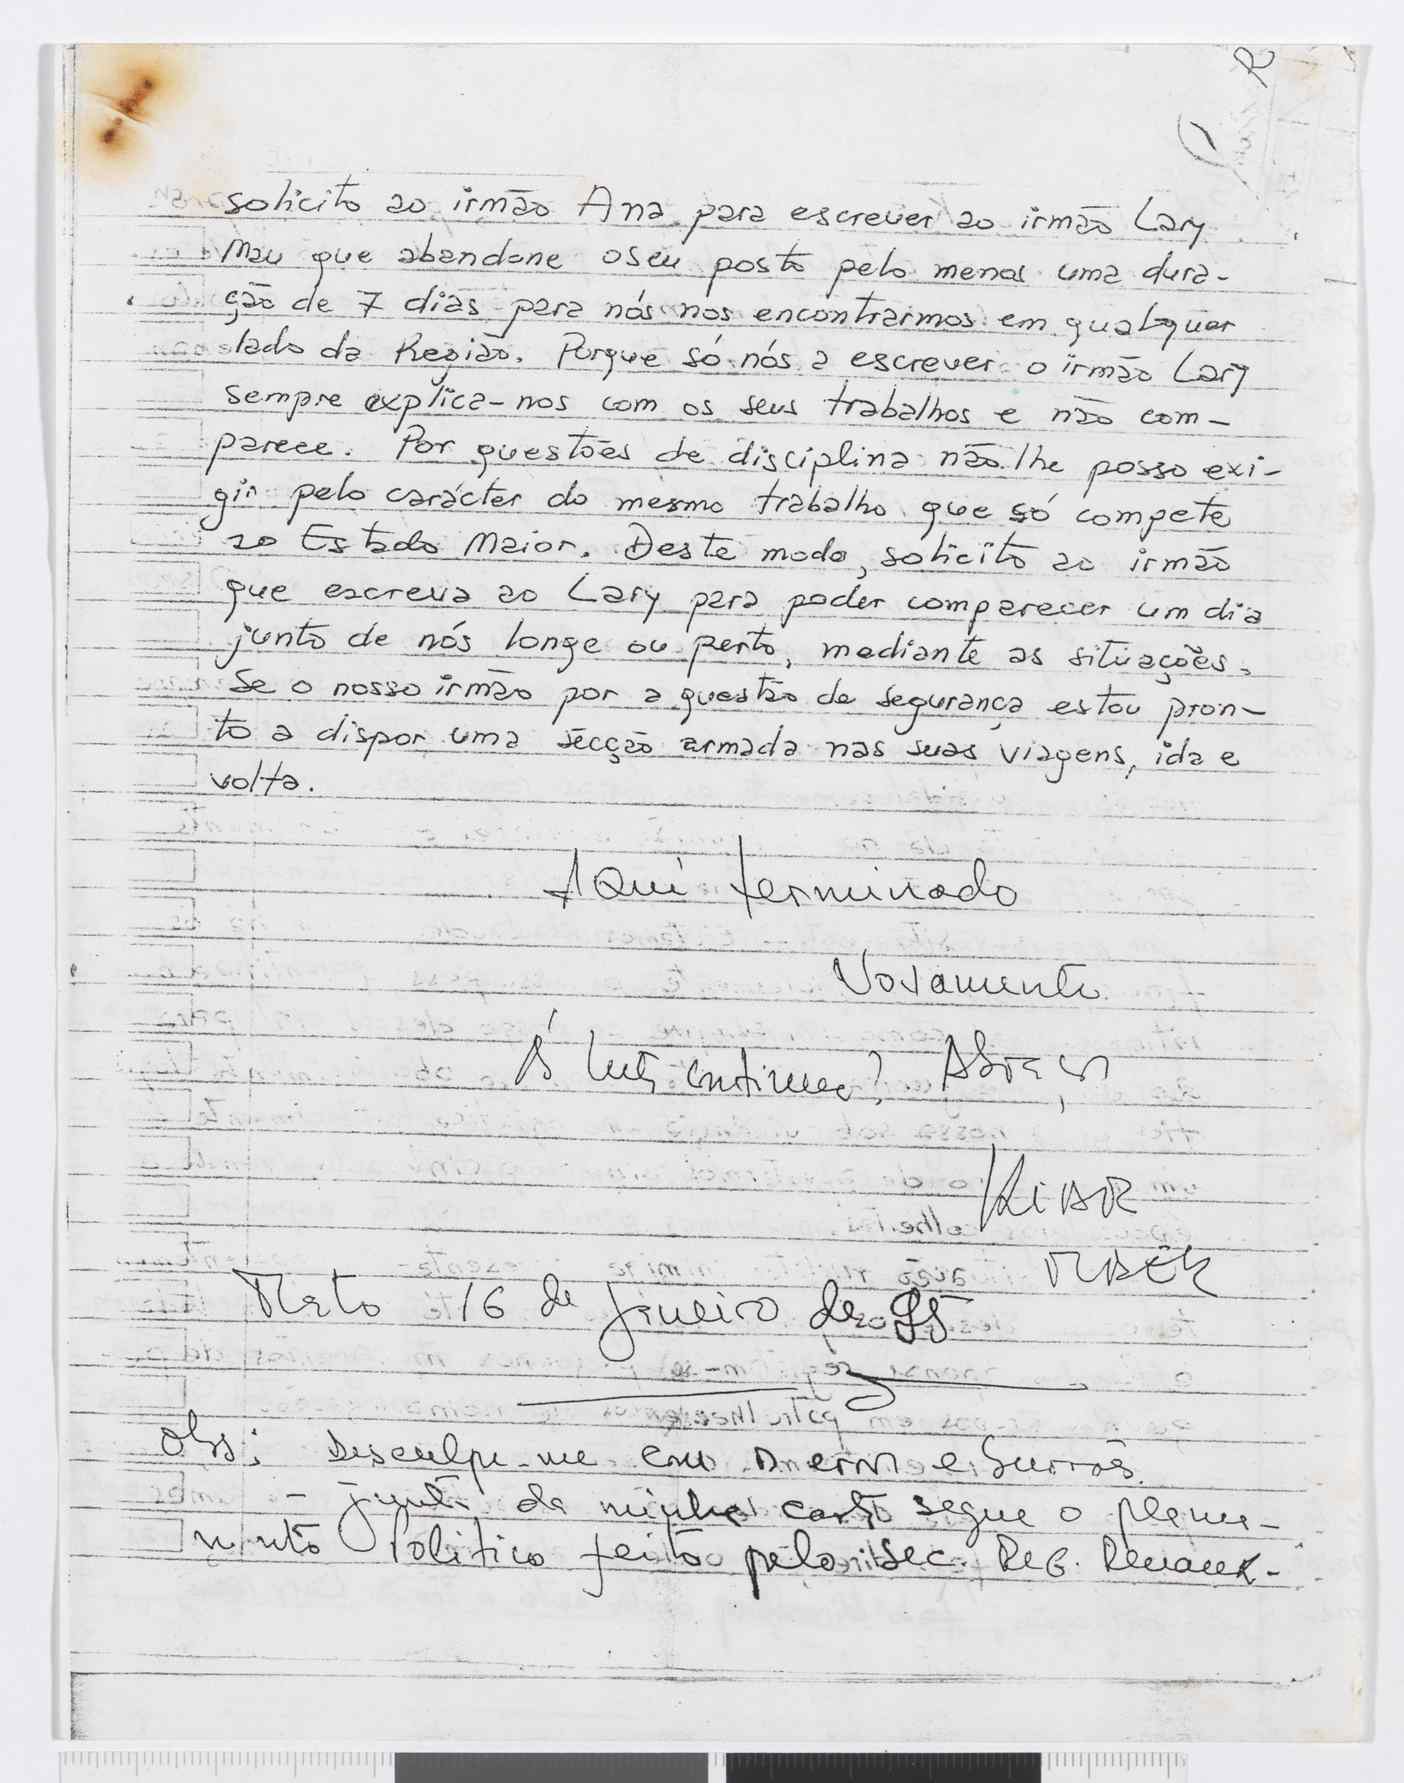 solicito ao irmão Ana para escrever ao irmão Lary
Mau que abandone oseu posto pelo menos uma dura-
ção de 7 dias para nós nos encontrarmos em qualquer
lado da Região. Porque só nós a escrever o irmão Lary
sempre explica-nos com os seus trabalhos e não com-
parece. Por questões de disciplina não lhe posso exi-
gir pelo carácter do mesmo trabalho que só compete
ao Estado Maior. Deste modo, solicito ao irmão
que escreva ao Lary para poder comparecer um dia
junto de nós longe ou perto, mediante as situações.
Se o nosso irmão por a questão de segurança estou pron-
to a dispor uma secção armada nas suas viagens, ida e
volta.
Aqui terminado
Vosamente
À luta continua! Abraço
KiAR
MBÊK
Mato 16 de Janeiro de 95
Obs: Desculpe-me com e burrões.
- Junto da minha carta segue o
Politico feito pelo Sec. Reg.